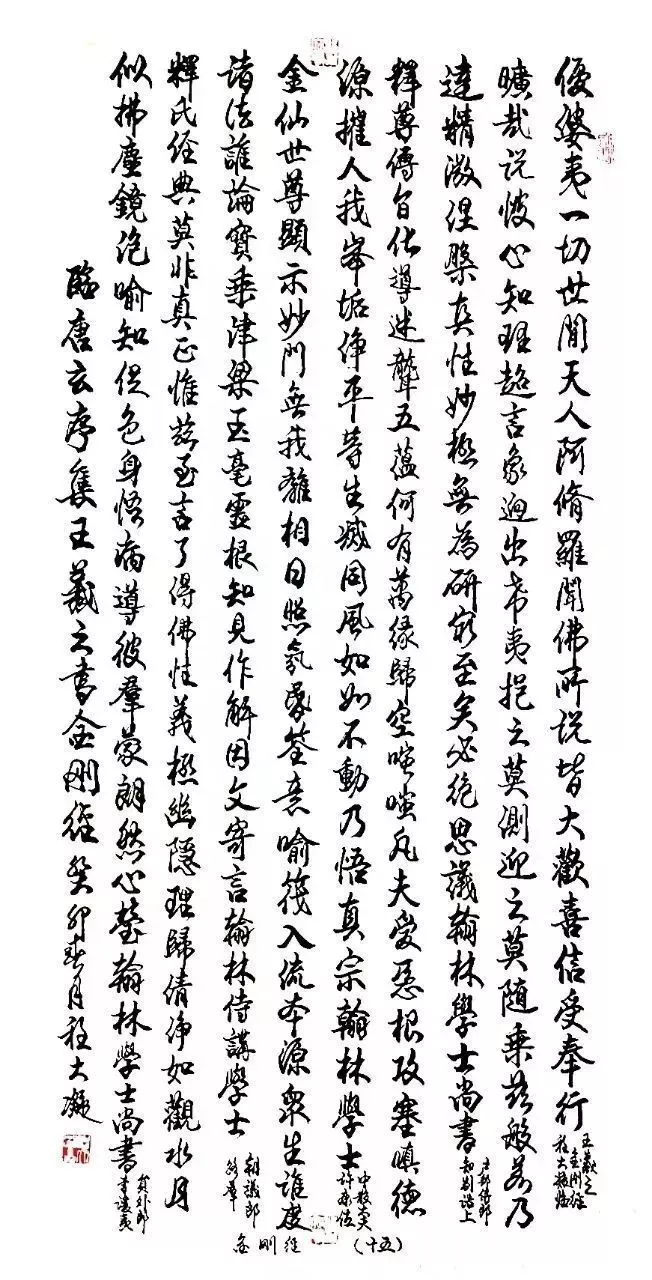 優婆夷一切世間天人阿脩羅聞佛所説皆大歡喜信受奉行
王羲之
金剛經
程大凝臨
曠哉説彼心知理超言象迥出希夷挹之莫測迎之莫隨乗兹般若乃
達精微涅槃真性妙極無為研窮至矣必絶思議翰林學士尚書
户部侍郎
知制誥上
釋尊傳旨化導迷聾五蘊何有萬緣歸空嗤嗤凡夫愛惡根攻塞嗔德
源摧人我峯垢淨平等生滅同風如如不動乃悟真宗翰林學士
中散大夫
許康佐
金仙世尊顯示妙門無我離相日照氛昏筌意喻筏入流本源衆生誰度
諸法誰論寳乗津梁玉毫靈根知見作解因文寄言翰林侍講學士
朝議郎
釋氏經典莫非真正惟兹至言了得佛性義極幽隱理歸清净如觀水月
似拂塵鏡泡喻知促色身悟病導彼羣蒙朗然心瑩翰林學士尚書
員外郎
李讓夷
臨唐玄序集王羲之書金剛經癸卯年月程大凝
金剛經 (十五)